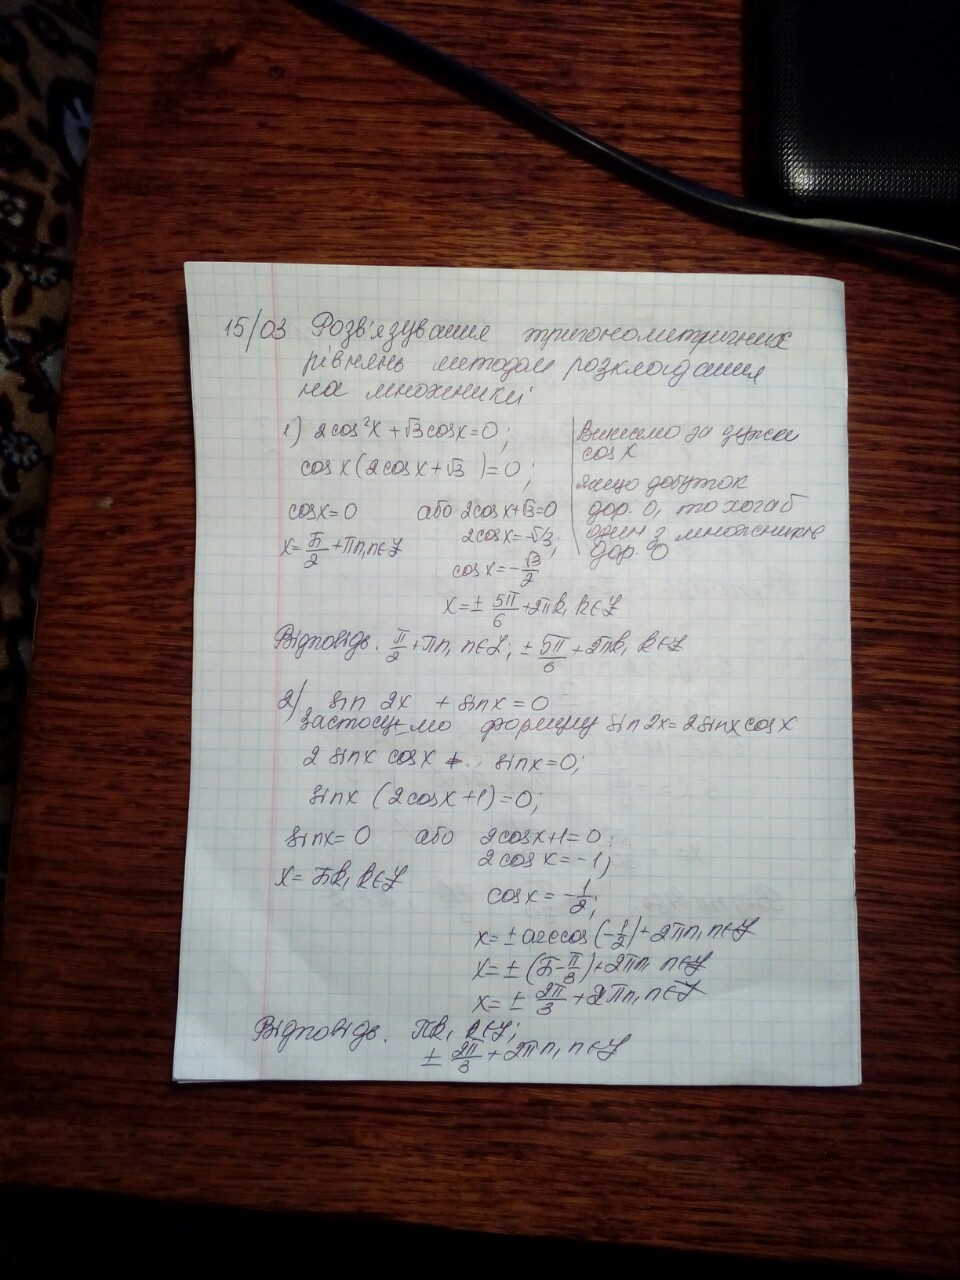 15/03 Розв'язування тригонометричних
рівнянь методом розкладання
на множники
1) 2cos²x + √3cosx = 0;
cos x (2cosx + √3) = 0;
cosx = 0 або 2cosx + √3 = 0
x = π/2 + πn, n∈Z
2cosx = -√3;
cosx = -√3/2
x = ± 5π/6 + 2πk, k∈Z
Винесемо за дужки
cos x
якщо добуток
дор. 0, то хоча б
один з множників
дор. 0
Відповідь. π/2 + πn, n∈Z; ± 5π/6 + 2πk, k∈Z
2) sin 2x + sinx = 0
Застосуємо формулу sin2x = 2sinx cosx
2 sinx cosx + sinx = 0;
sinx (2cosx + 1) = 0;
sinx = 0 або 2cosx + 1 = 0;
x = πk, k∈Z
2cosx = -1;
cosx = -1/2;
x = ± arccos(-1/2) + 2πn, n∈Z
x = ± (π - π/3) + 2πn n∈Z
x = ± 2π/3 + 2πn, n∈Z
Відповідь. πk, k∈Z;
± 2π/3 + 2πn, n∈Z